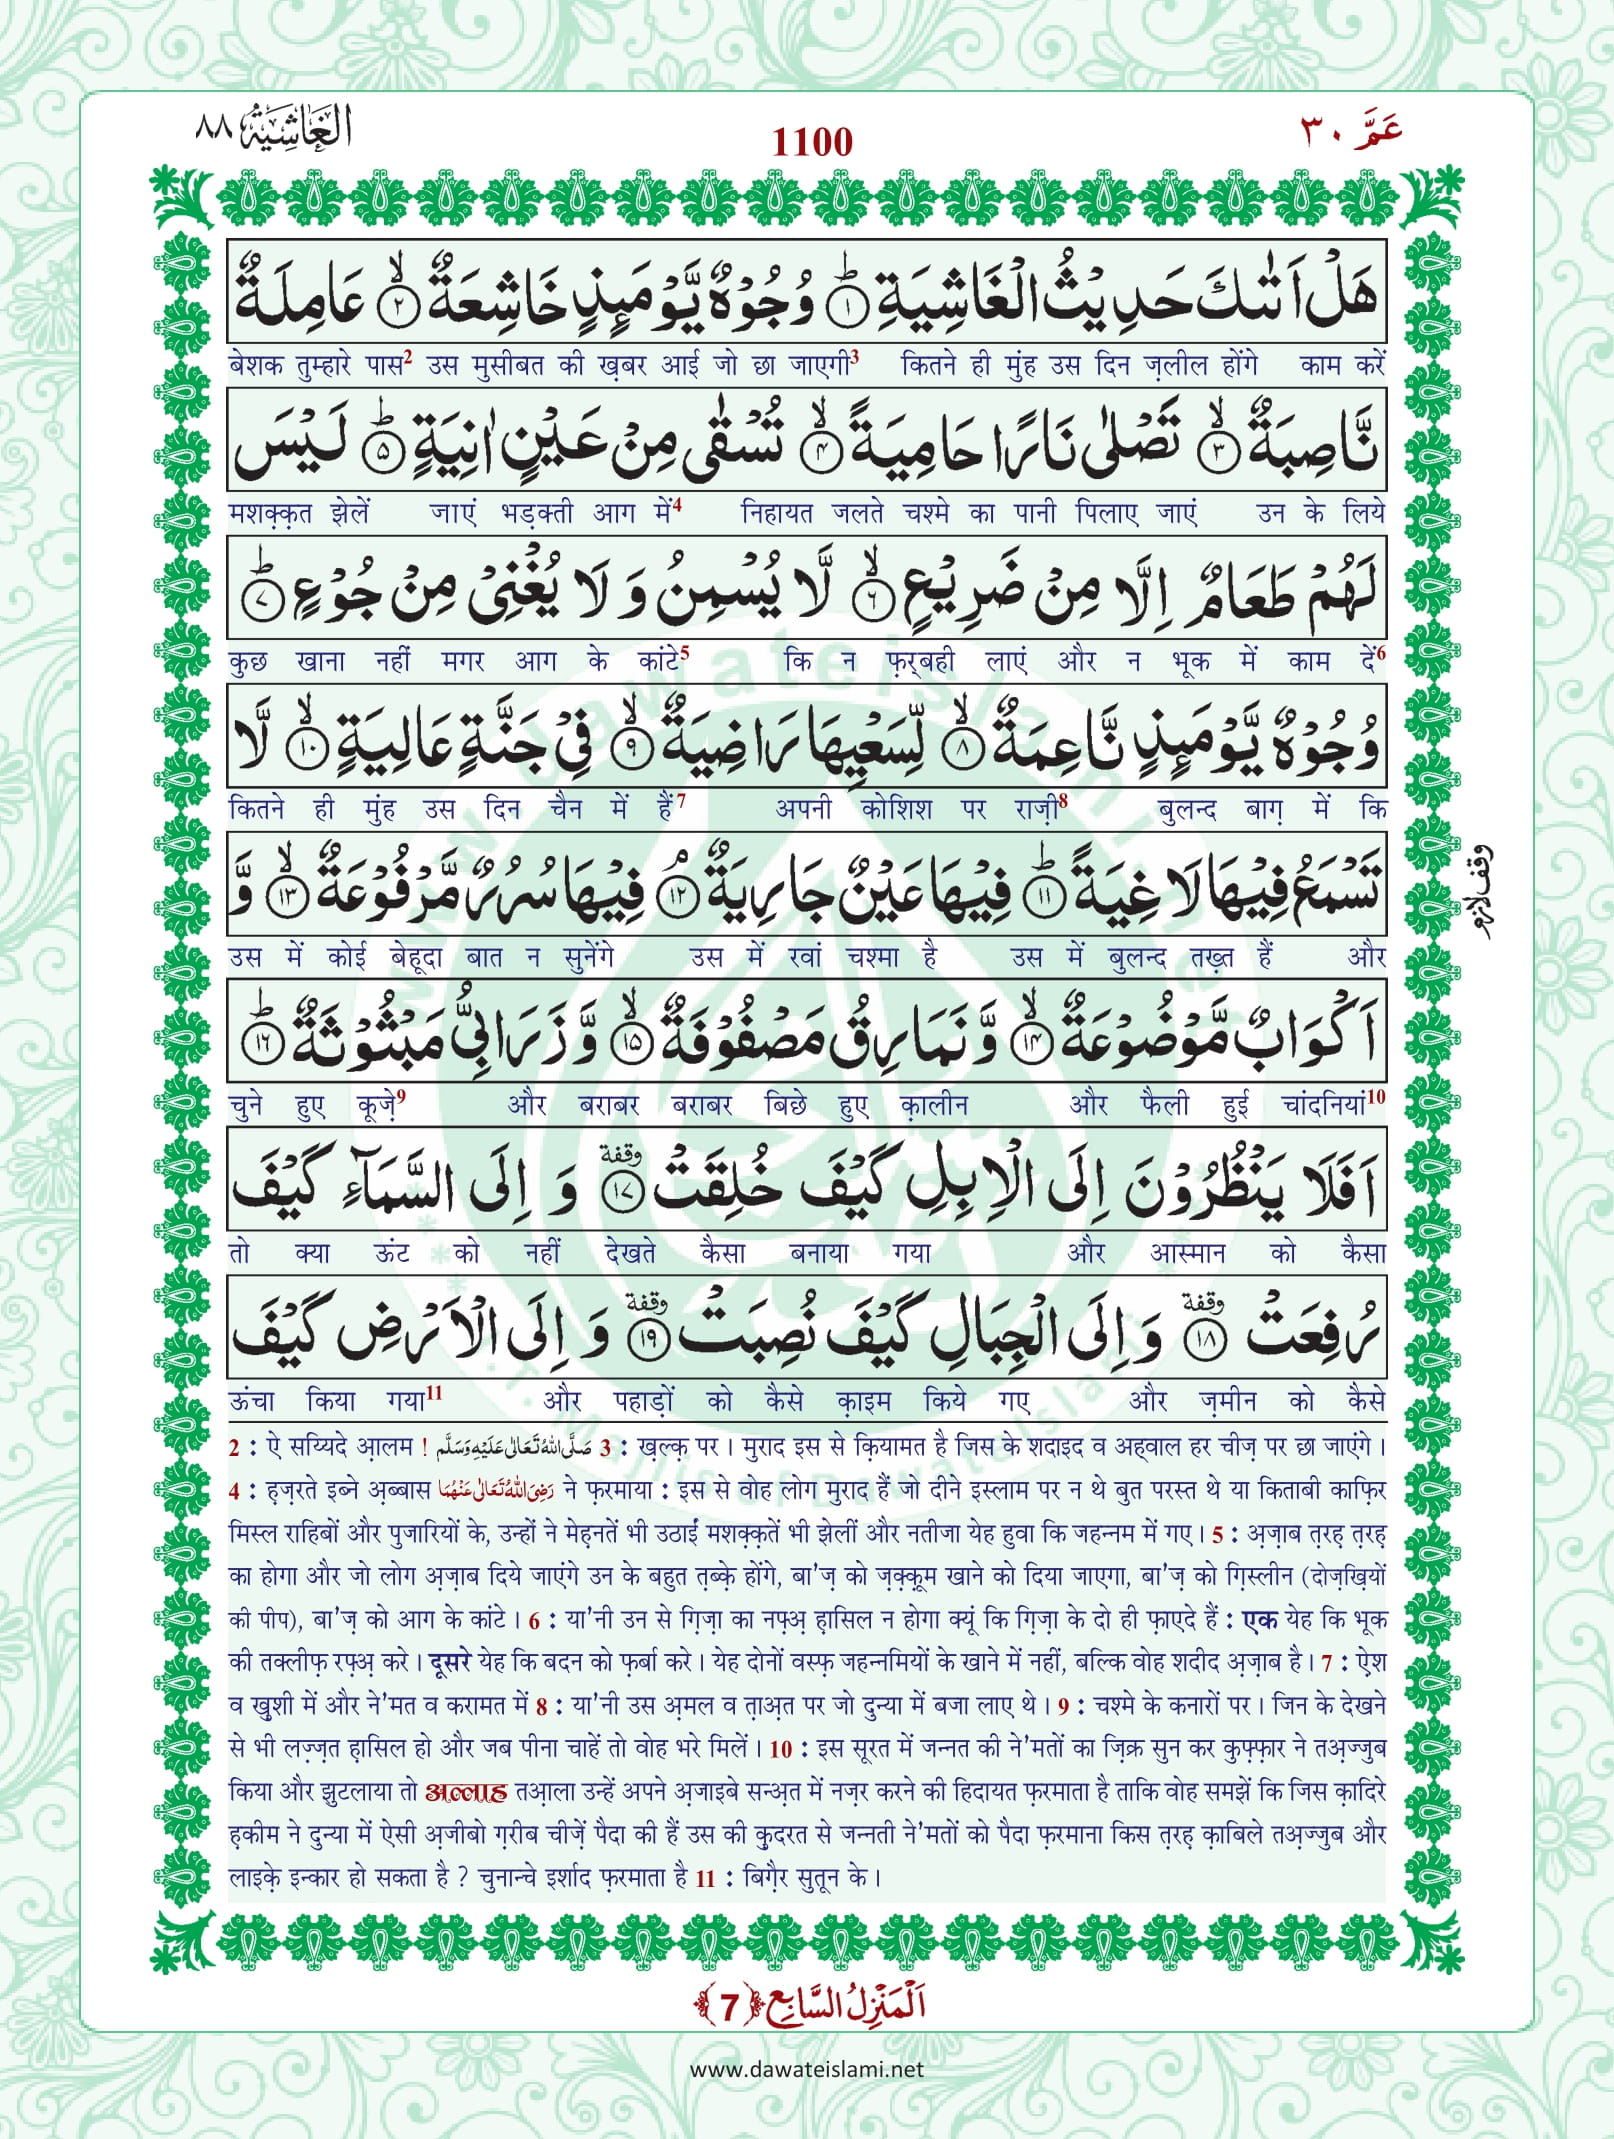 عَمَّ ٣٠
1100
الغَاشِيَةُ ٨٨
هَلْ اَتٰىكَ حَدِیْثُ الْغَاشِیَةِؕ(۱) وُجُوْهٌ یَّوْمَىٕذٍ خَاشِعَةٌۙ(۲) عَامِلَةٌ
बेशक तुम्हारे पास2 उस मुसीबत की ख़बर आई जो छा जाएगी3 कितने ही मुंह उस दिन ज़लील होंगे काम करें
نَّاصِبَةٌۙ(۳) تَصْلٰى نَارًا حَامِیَةًۙ(۴) تُسْقٰى مِنْ عَیْنٍ اٰنِیَةٍؕ(۵) لَیْسَ
मशक़्क़त झेलें जाएं भड़क्ती आग में4 निहायत जलते चश्मे का पानी पिलाए जाएं उन के लिये
لَهُمْ طَعَامٌ اِلَّا مِنْ ضَرِیْعٍۙ(۶) لَّا یُسْمِنُ وَ لَا یُغْنِیْ مِنْ جُوْ عٍؕ(۷)
कुछ खाना नहीं मगर आग के कांटे5 कि न फ़र्बही लाएं और न भूक में काम दें6
وُجُوْهٌ یَّوْمَىٕذٍ نَّاعِمَةٌۙ(۸) لِّسَعْیِهَا رَاضِیَةٌۙ(۹) فِیْ جَنَّةٍ عَالِیَةٍۙ(۱۰) لَّا
कितने ही मुंह उस दिन चैन में हैं7 अपनी कोशिश पर राज़ी8 बुलन्द बाग़ में कि
تَسْمَعُ فِیْهَا لَاغِیَةًؕ(۱۱) فِیْهَا عَیْنٌ جَارِیَةٌۘ(۱۲) فِیْهَا سُرُرٌ مَّرْفُوْعَةٌۙ(۱۳) وَّ
وقف لازم
उस में कोई बेहूदा बात न सुनेंगे उस में रवां चश्मा है उस में बुलन्द तख़्त हैं और
اَكْوَابٌ مَّوْضُوْعَةٌۙ(۱۴) وَّ نَمَارِقُ مَصْفُوْفَةٌۙ(۱۵) وَّ زَرَابِیُّ مَبْثُوْثَةٌؕ(۱۶)
चुने हुए कूज़े9 और बराबर बराबर बिछे हुए क़ालीन और फैली हुई चांदनियां10
اَفَلَا یَنْظُرُوْنَ اِلَى الْاِبِلِ كَیْفَ خُلِقَتْٙ(۱۷) وقفة وَ اِلَى السَّمَآءِ كَیْفَ
तो क्या ऊंट को नहीं देखते कैसा बनाया गया और आस्मान को कैसा
رُفِعَتْٙ(۱۸) وقفة وَ اِلَى الْجِبَالِ كَیْفَ نُصِبَتْٙ(۱۹) وقفة وَ اِلَى الْاَرْضِ كَیْفَ
ऊंचा किया गया11 और पहाड़ों को कैसे क़ाइम किये गए और ज़मीन को कैसे
2 : ऐ सय्यिदे आ़लम ! صَلَّى اللهُ تَعَالٰى عَلَيْهِ وَسَلَّم 3 : ख़ल्क़ पर । मुराद इस से क़ियामत है जिस के शदाइद व अह्वाल हर चीज़ पर छा जाएंगे ।
4 : ह़ज़रते इब्ने अ़ब्बास رَضِىَ اللهُ تَعَالٰى عَنْهُمَا ने फ़रमाया : इस से वोह लोग मुराद हैं जो दीने इस्लाम पर न थे बुत परस्त थे या किताबी काफ़िर
मिस्ल राहिबों और पुजारियों के, उन्हों ने मेह़नतें भी उठाईं मशक़्क़तें भी झेलीं और नतीजा येह हुवा कि जहन्नम में गए । 5 : अ़ज़ाब त़रह़ त़रह़
का होगा और जो लोग अ़ज़ाब दिये जाएंगे उन के बहुत त़ब्क़े होंगे, बा'ज़ को ज़क़्क़ूम खाने को दिया जाएगा, बा'ज़ को ग़िस्लीन (दोज़ख़ियों
की पीप), बा'ज़ को आग के कांटे । 6 : या'नी उन से ग़िज़ा का नफ़्अ़ ह़ासिल न होगा क्यूं कि ग़िज़ा के दो ही फ़ाएदे हैं : एक येह कि भूक
की तक्लीफ़ रफ़्अ़ करे । दूसरे येह कि बदन को फ़र्बा करे । येह दोनों वस्फ़ जहन्नमियों के खाने में नहीं, बल्कि वोह शदीद अ़ज़ाब है । 7 : ऐश
व ख़ुशी में और ने'मत व करामत में 8 : या'नी उस अ़मल व त़ाअ़त पर जो दुन्या में बजा लाए थे । 9 : चश्मे के कनारों पर । जिन के देखने
से भी लज़्ज़त ह़ासिल हो और जब पीना चाहें तो वोह भरे मिलें । 10 : इस सूरत में जन्नत की ने'मतों का ज़िक्र सुन कर कुफ़्फ़ार ने तअ़ज्जुब
किया और झुटलाया तो अल्लाह तआ़ला उन्हें अपने अ़जाइबे सन्अ़त में नज़र करने की हिदायत फ़रमाता है ताकि वोह समझें कि जिस क़ादिरे
ह़कीम ने दुन्या में ऐसी अ़जीबो ग़रीब चीज़ें पैदा की हैं उस की क़ुदरत से जन्नती ने'मतों को पैदा फ़रमाना किस त़रह़ क़ाबिले तअ़ज्जुब और
लाइक़े इन्कार हो सकता है ? चुनान्चे इर्शाद फ़रमाता है 11 : बिग़ैर सुतून के ।
اَلْمَنْزِلُ السَّابِع ﴿7﴾
www.dawateislami.net